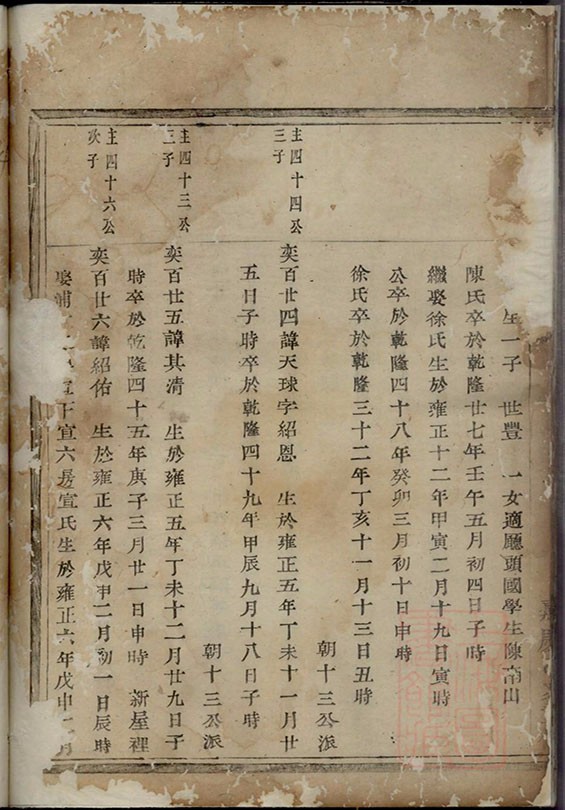 生一子　世豐　一女適廳頭國學生陳南山
陳氏卒於乾隆廿七年壬午五月初四日子時
繼娶徐氏生於雍正十二年甲寅二月十九日寅時
公卒於乾隆四十八年癸卯三月初十日申時
徐氏卒於乾隆三十二年丁亥十一月十三日丑時
朝十三公派
主四十四公
三子
奕百廿四諱天球字紹恩　生於雍正五年丁未十一月廿
五日子時卒於乾隆四十九年甲辰九月十八日子時
朝十三公派
主四十三公
三子
奕百廿五諱其清　生於雍正五年丁未十二月廿九日子
時卒於乾隆四十五年庚子三月廿一日申時　新屋裡
主四十六公
次子
奕百廿六諱紹佑　生於雍正六年戊申二月初一日辰時
娶浦宣六房宣氏生於雍正六年戊申二月